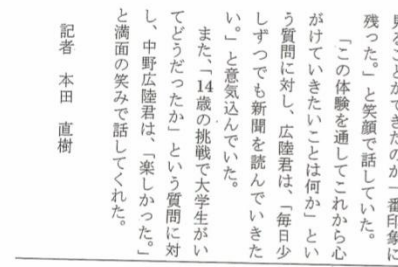 見ることができたのが一番印象に
残った。」と笑顔で話していた。
「この体験を通してこれから心
がけていきたいことは何か」とい
う質問に対し、広陸君は、「毎日少
しずつでも新聞を読んでいきた
い。」と意気込んでいた。
また、「14歳の挑戦で大学生がい
てどうだったか」という質問に対
し、中野広陸君は、「楽しかった。」
と満面の笑みで話してくれた。
記者 本田 直樹